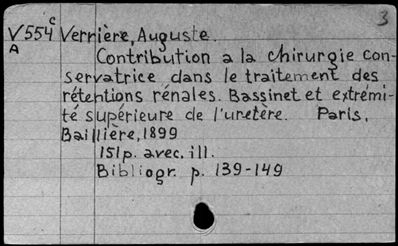 3
V554c Verrière, Auguste.
A
Contribution a la chirurgie con-
servatrice dans le traitement des
rétentions rénales. Bassinet et extrémi-
té supérieure de l'uretère. Paris,
Baillière, 1899
151p. avec. ill.
Bibliogr. p. 139-149